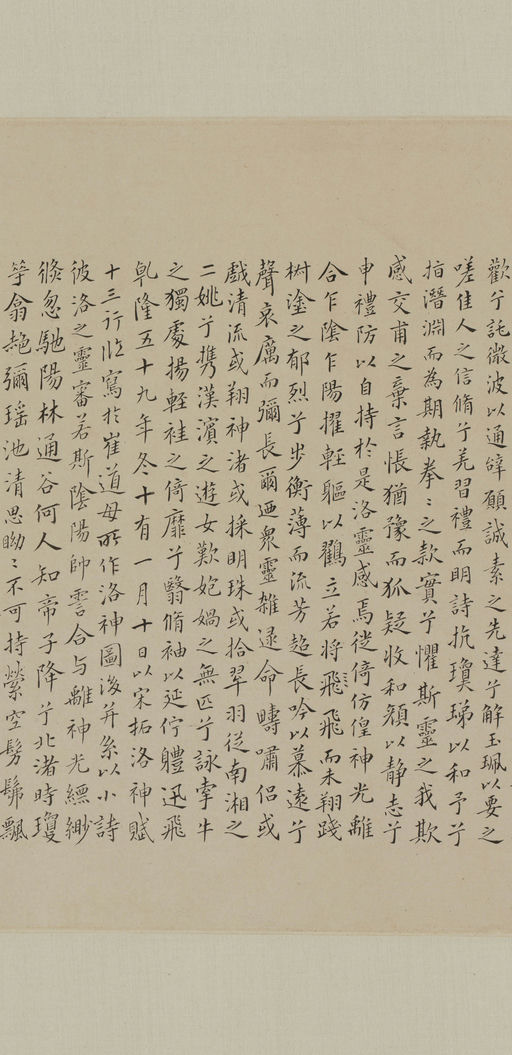 歡兮託微波以通辝願誠素之先達兮解玉珮以要之
嗟佳人之信脩兮羌習禮而明詩抗瓊珶以和予兮
指潛淵而為期執拳〻之款實兮懼斯靈之我欺
感交甫之棄言悵猶豫而狐疑收和顏以静志兮
申禮防以自持於是洛靈感焉徙倚仿偟神光離
合乍陰乍陽擢輕軀以鸖立若將飛飛而未翔踐
椒塗之郁烈兮步衡薄而流芳超長吟以慕遠兮
聲哀厲而彌長爾迺衆靈雜遝命疇嘯侶或
戲清流或翔神渚或採明珠或拾翠羽從南湘之
二姚兮携漢濱之遊女歎妑媧之無匹兮詠牽牛
之獨處揚輕袿之倚靡兮翳脩袖以延佇軆迅飛
乹隆五十九年冬十有一月十日以宋拓洛神賦
十三行臨寫於崔道母所作洛神圖後并系以小詩
彼洛之靈審若斯陰陽帥雲合与離神光縹緲
倏忽馳陽林通谷何人知帝子降兮北渚時瓊
筝翕赩彌瑶池清思眑〻不可持縈空髣髴飄